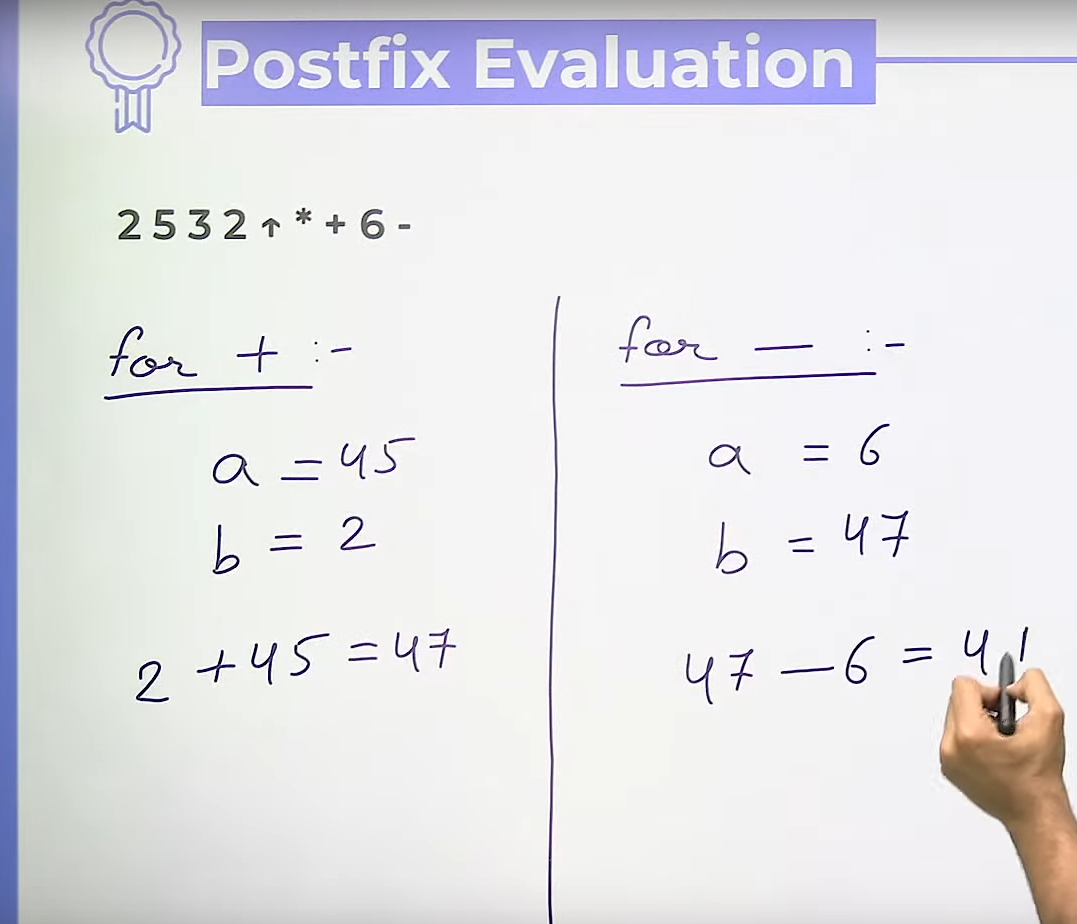 Postfix Evaluation
2 5 3 2 ↑ * + 6 -
for + :-
a = 45
b = 2
2 + 45 = 47
for — :-
a = 6
b = 47
47 — 6 = 41